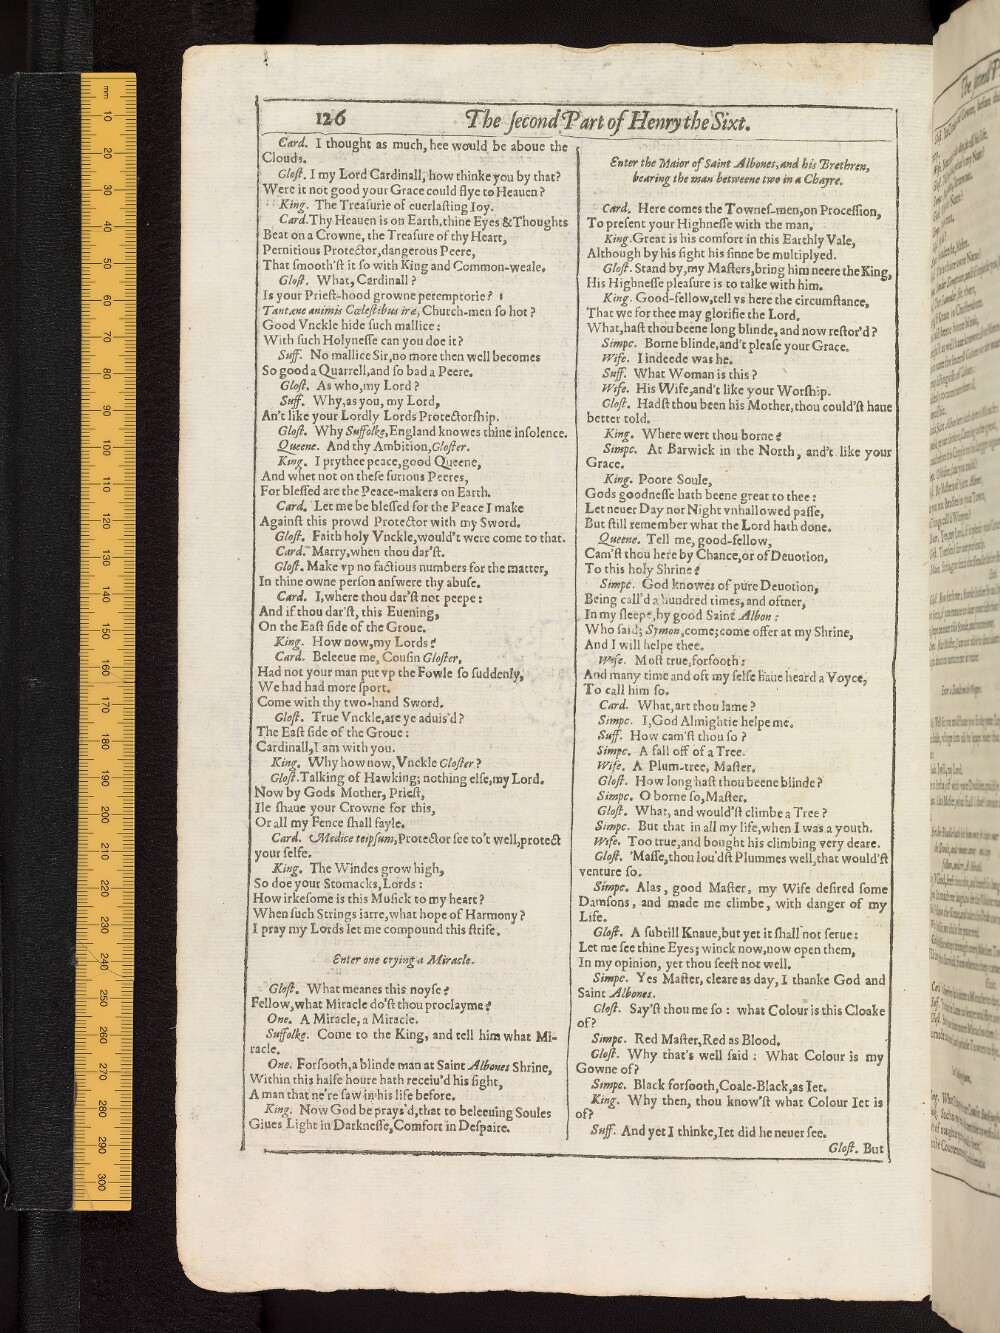 126
The ſecond Part of Henry the Sixt.
Card. I thought as much, hee would be aboue the
Clouds.
Gloſt. I my Lord Cardinall, how thinke you by that?
Were it not good your Grace could flye to Heauen?
King. The Treaſurie of euerlaſting Ioy.
Card. Thy Heauen is on Earth, thine Eyes & Thoughts
Beat on a Crowne, the Treaſure of thy Heart,
Pernitious Protector, dangerous Peere,
That ſmooth'ſt it ſo with King and Common-weale.
Gloſt. What, Cardinall?
Is your Prieſt-hood growne peremptorie?
Tantæne animis Cœleſtibus iræ, Church-men ſo hot?
Good Vnckle hide ſuch mallice:
With ſuch Holyneſſe can you doe it?
Suff. No mallice Sir, no more then well becomes
So good a Quarrell, and ſo bad a Peere.
Gloſt. As who, my Lord?
Suff. Why, as you, my Lord,
An't like your Lordly Lords Protectorſhip.
Gloſt. Why Suffolke, England knowes thine inſolence.
Queene. And thy Ambition, Gloſter.
King. I prythee peace, good Queene,
And whet not on theſe furious Peeres,
For bleſſed are the Peace-makers on Earth.
Card. Let me be bleſſed for the Peace I make
Againſt this prowd Protector with my Sword.
Gloſt. Faith holy Vnckle, would't were come to that.
Card. Marry, when thou dar'ſt.
Gloſt. Make vp no factious numbers for the matter,
In thine owne perſon anſwere thy abuſe.
Card. I, where thou dar'ſt not peepe:
And if thou dar'ſt, this Euening,
On the Eaſt ſide of the Groue.
King. How now, my Lords?
Card. Beleeue me, Couſin Gloſter,
Had not your man put vp the Fowle ſo ſuddenly,
We had had more ſport.
Come with thy two-hand Sword.
Gloſt. True Vnckle, are ye aduis'd?
The Eaſt ſide of the Groue:
Cardinall, I am with you.
King. Why how now, Vnckle Gloſter?
Gloſt. Talking of Hawking; nothing elſe, my Lord.
Now by Gods Mother, Prieſt,
Ile ſhaue your Crowne for this,
Or all my Fence ſhall fayle.
Card. Medice teipſum, Protector ſee to't well, protect
your ſelfe.
King. The Windes grow high,
So doe your Stomacks, Lords:
How irkeſome is this Muſick to my heart?
When ſuch Strings iarre, what hope of Harmony?
I pray my Lords let me compound this ſtrife.
Enter one crying a Miracle.
Gloſt. What meanes this noyſe?
Fellow, what Miracle do'ſt thou proclayme?
One. A Miracle, a Miracle.
Suffolke. Come to the King, and tell him what Mi-
racle.
One. Forſooth, a blinde man at Saint Albones Shrine,
Within this halfe houre hath receiu'd his ſight,
A man that ne're ſaw in his life before.
King. Now God be prays'd, that to beleeuing Soules
Giues Light in Darkneſſe, Comfort in Deſpaire.
Enter the Maior of Saint Albones, and his Brethren,
bearing the man betweene two in a Chayre.
Card. Here comes the Towneſ-men, on Proceſſion,
To preſent your Highneſſe with the man.
King. Great is his comfort in this Earthly Vale,
Although by his ſight his ſinne be multiplyed.
Gloſt. Stand by, my Maſters, bring him neere the King,
His Highneſſe pleaſure is to talke with him.
King. Good-fellow, tell vs here the circumſtance,
That we for thee may glorifie the Lord.
What, haſt thou beene long blinde, and now reſtor'd?
Simpc. Borne blinde, and't pleaſe your Grace.
Wife. I indeede was he.
Suff. What Woman is this?
Wife. His Wife, and't like your Worſhip.
Gloſt. Hadſt thou been his Mother, thou could'ſt haue
better told.
King. Where wert thou borne?
Simpc. At Barwick in the North, and't like your
Grace.
King. Poore Soule,
Gods goodneſſe hath beene great to thee:
Let neuer Day nor Night vnhallowed paſſe,
But ſtill remember what the Lord hath done.
Queene. Tell me, good-fellow,
Cam'ſt thou here by Chance, or of Deuotion,
To this holy Shrine?
Simpc. God knowes of pure Deuotion,
Being call'd a hundred times, and oftner,
In my ſleepe, by good Saint Albon:
Who ſaid; Symon, come; come offer at my Shrine,
And I will helpe thee.
Wife. Moſt true, forſooth:
And many time and oft my ſelfe haue heard a Voyce,
To call him ſo.
Card. What, art thou lame?
Simpc. I, God Almightie helpe me.
Suff. How cam'ſt thou ſo?
Simpc. A fall off of a Tree.
Wife. A Plum-tree, Maſter.
Gloſt. How long haſt thou beene blinde?
Simpc. O borne ſo, Maſter.
Gloſt. What, and would'ſt climbe a Tree?
Simpc. But that in all my life, when I was a youth.
Wife. Too true, and bought his climbing very deare.
Gloſt. 'Maſſe, thou lou'dſt Plummes well, that would'ſt
venture ſo.
Simpc. Alas, good Maſter, my Wife deſired ſome
Damſons, and made me climbe, with danger of my
Life.
Gloſt. A ſubtill Knaue, but yet it ſhall not ſerue:
Let me ſee thine Eyes; winck now, now open them,
In my opinion, yet thou ſeeſt not well.
Simpc. Yes Maſter, cleare as day, I thanke God and
Saint Albones.
Gloſt. Say'ſt thou me ſo: what Colour is this Cloake
of?
Simpc. Red Maſter, Red as Blood.
Gloſt. Why that's well ſaid: What Colour is my
Gowne of?
Simpc. Black forſooth, Coale-Black, as Iet.
King. Why then, thou know'ſt what Colour Iet is
of?
Suff. And yet I thinke, Iet did he neuer ſee.
Gloſt. But
mm 10 20 30 40 50 60 70 80 90 100 110 120 130 140 150 160 170 180 190 200 210 220 230 240 250 260 270 280 290 300